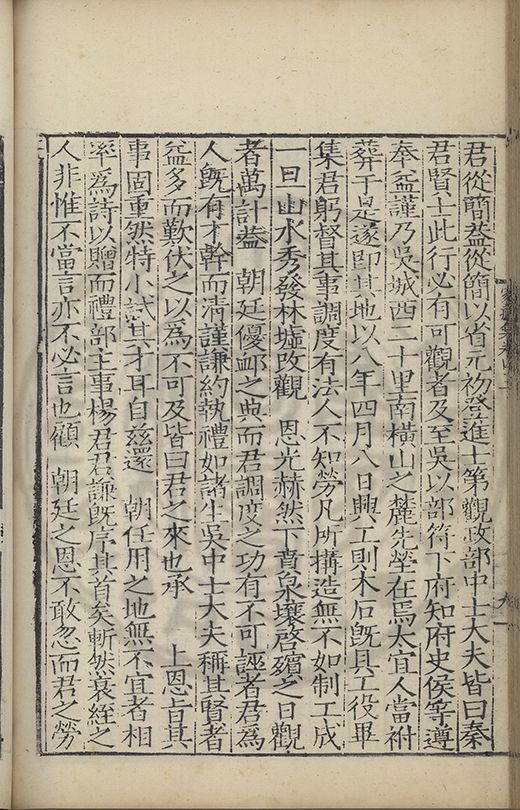 君從簡益從簡以省元初登進士第觀政部中士大夫皆曰秦
君賢士此行必有可觀者及至吳以部符下府知府史侯等遵
奉益謹乃吳城西二十里南橫山之麓先塋在焉太宜人當祔
葬于是遂即其地以八年四月八日興工則木石既具工役畢
集君躬督其事調度有法人不知勞凡所搆造無不如制工成
一旦山水秀發林墟改觀 恩光赫然下賁泉壤啓殯之日觀
者萬計蓋 朝廷優䘏之典而君調度之功有不可誣者君為
人既有才幹而清謹謙約執禮如諸生吳中士大夫稱其賢者
益多而歎伏之以為不可及皆曰君之來也承 上恩旨其
事固重然特小試其才耳自茲還 朝任用之地無不宜者相
率為詩以贈而禮部主事楊君君謙既序其首矣斬然衰絰之
人非惟不當言亦不必言也顧 朝廷之恩不敢忽而君之勞